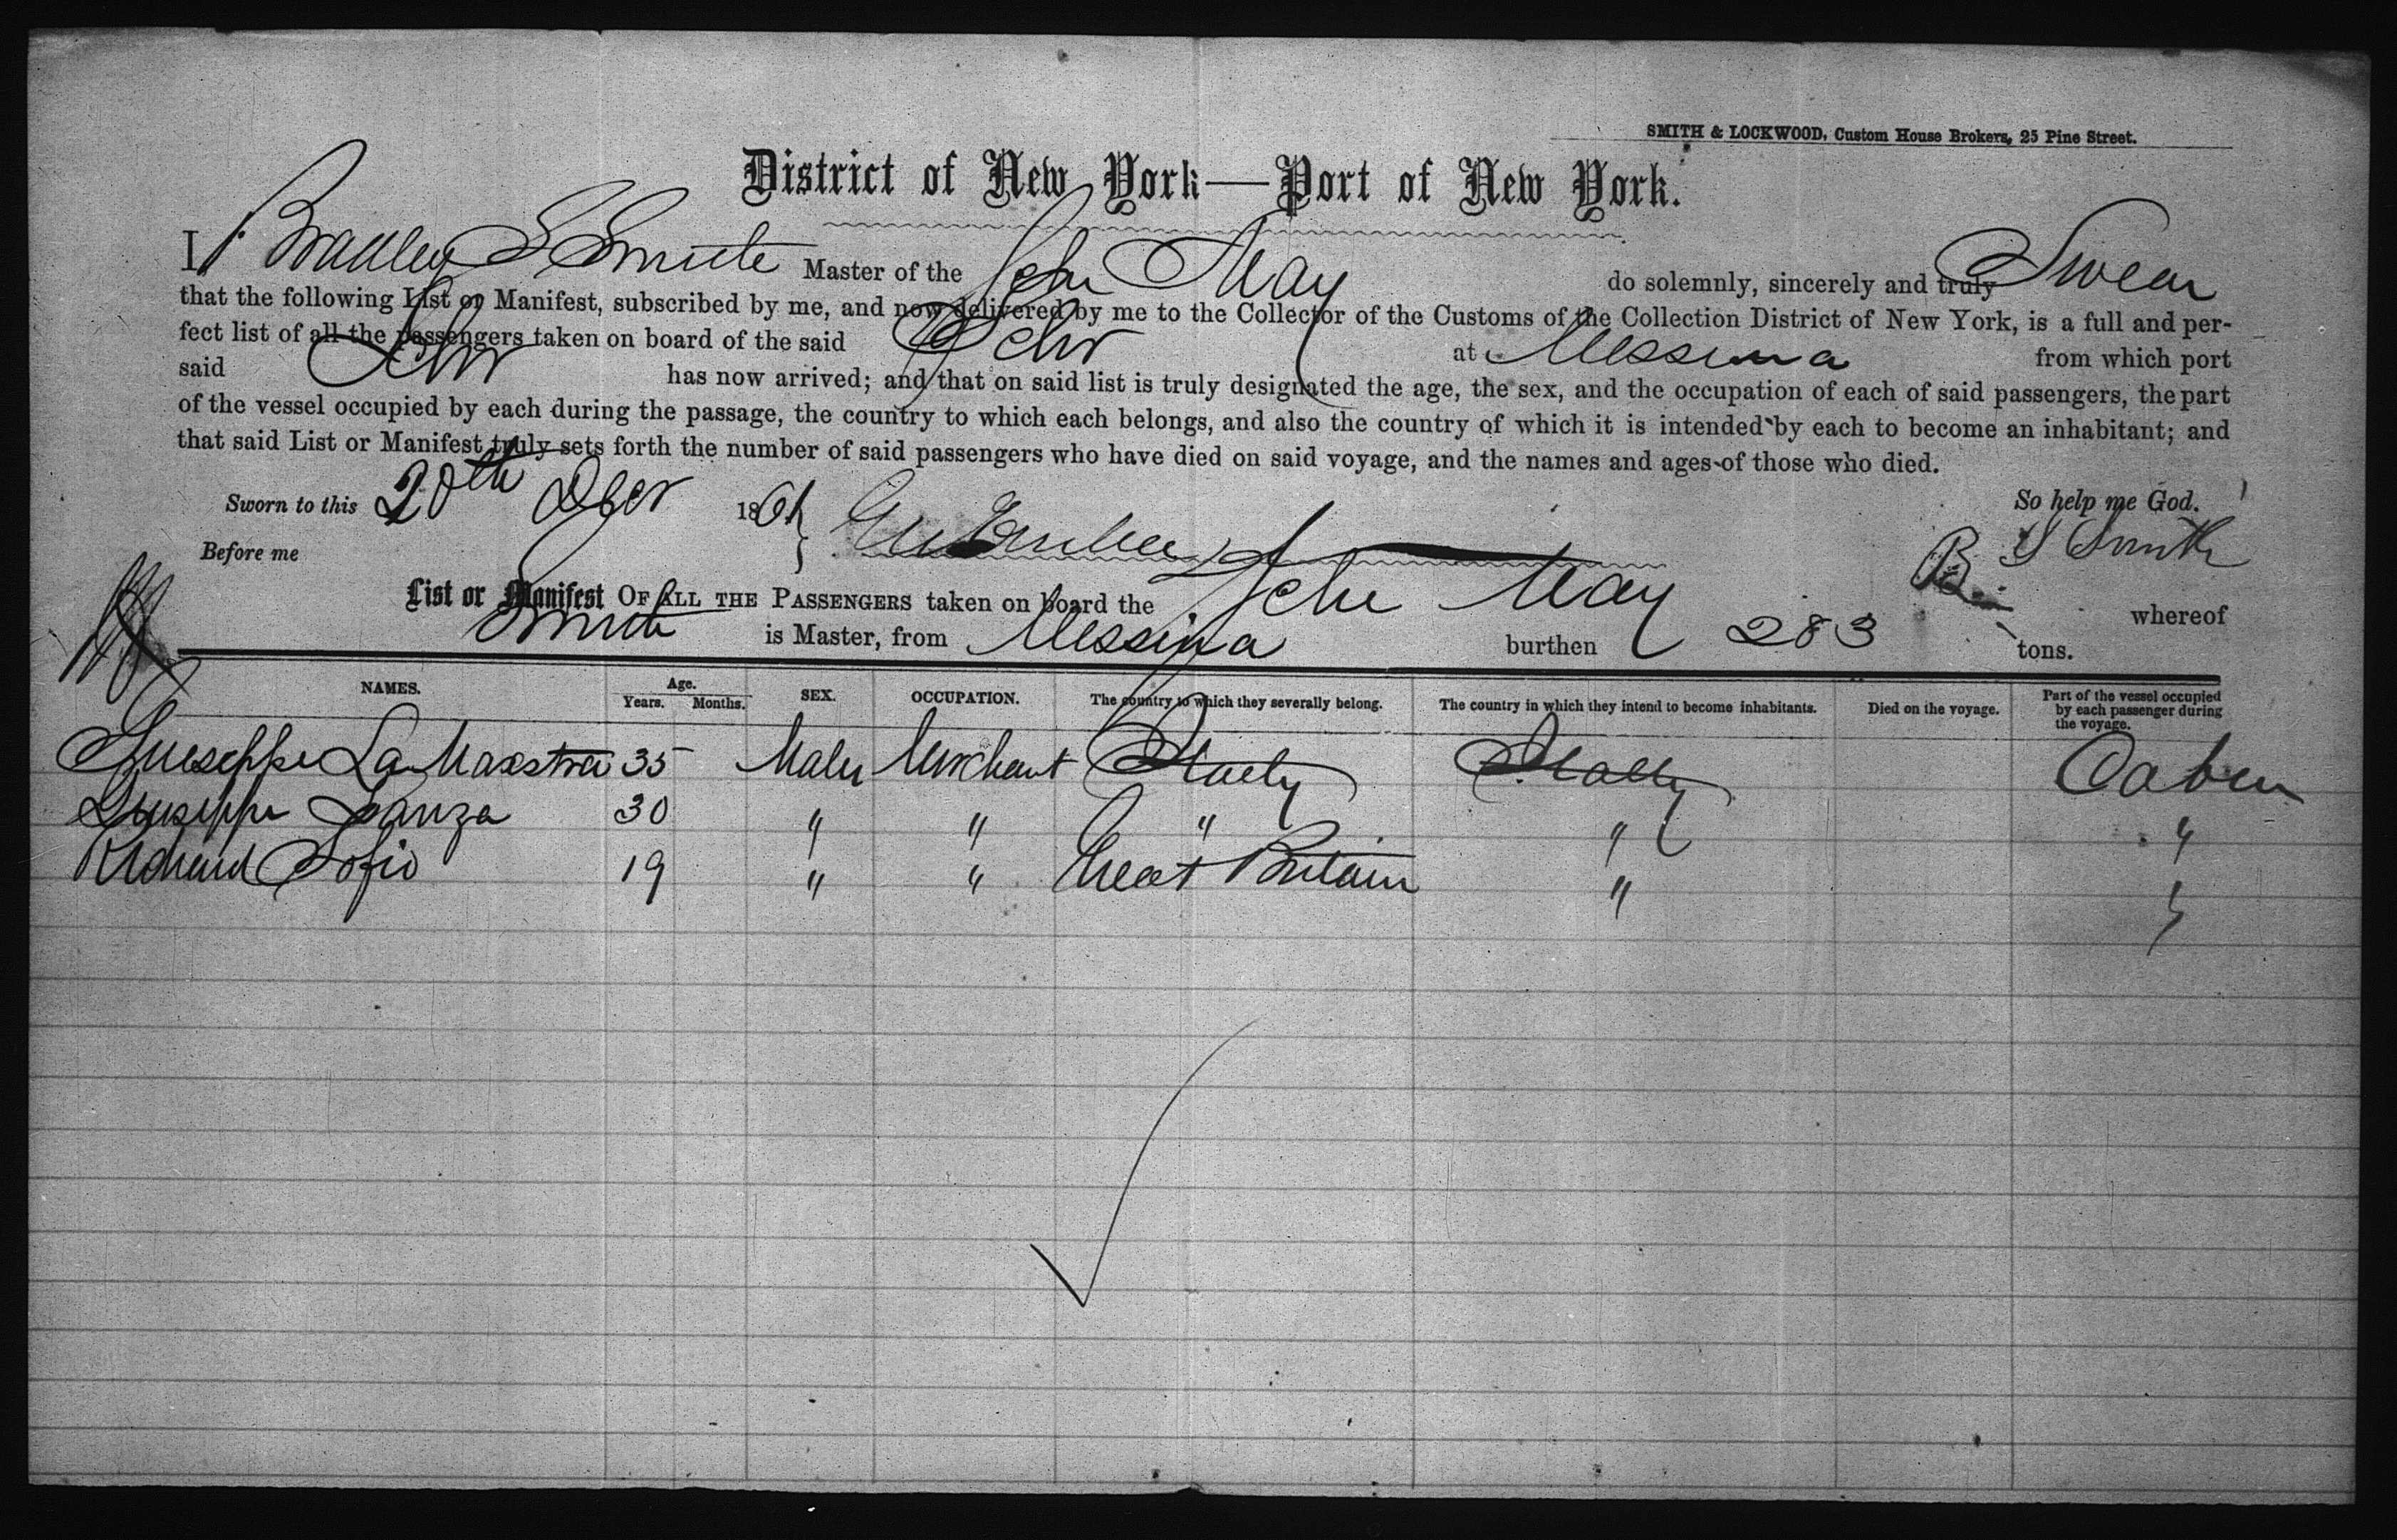 SMITH & LOCKWOOD, Custom House Brokers, 25 Pine Street.
District of New York—Port of New York.
I, Bradley S Smith Master of the Schr May do solemnly, sincerely and truly Swear
that the following List or Manifest, subscribed by me, and now delivered by me to the Collector of the Customs of the Collection District of New York, is a full and per-
fect list of all the passengers taken on board of the said Schr at Messina from which port
said Schr has now arrived; and that on said list is truly designated the age, the sex, and the occupation of each of said passengers, the part
of the vessel occupied by each during the passage, the country to which each belongs, and also the country of which it is intended by each to become an inhabitant; and
that said List or Manifest truly sets forth the number of said passengers who have died on said voyage, and the names and ages of those who died.
Sworn to this 20th Decr 1861 So help me God.
Before me B S Smith
List or Manifest OF ALL THE PASSENGERS taken on board the Schr May whereof
Smith is Master, from Messina burthen 283 tons.
NAMES. Age. Years. Months. SEX. OCCUPATION. The country to which they severally belong. The country in which they intend to become inhabitants. Died on the voyage. Part of the vessel occupied by each passenger during the voyage.
Guiseppe La Maestra 35 Male Merchant Italy Italy Cabin
Guiseppe Lanza 30 " " " " "
Richard Sofio 19 " " Great Britain " "